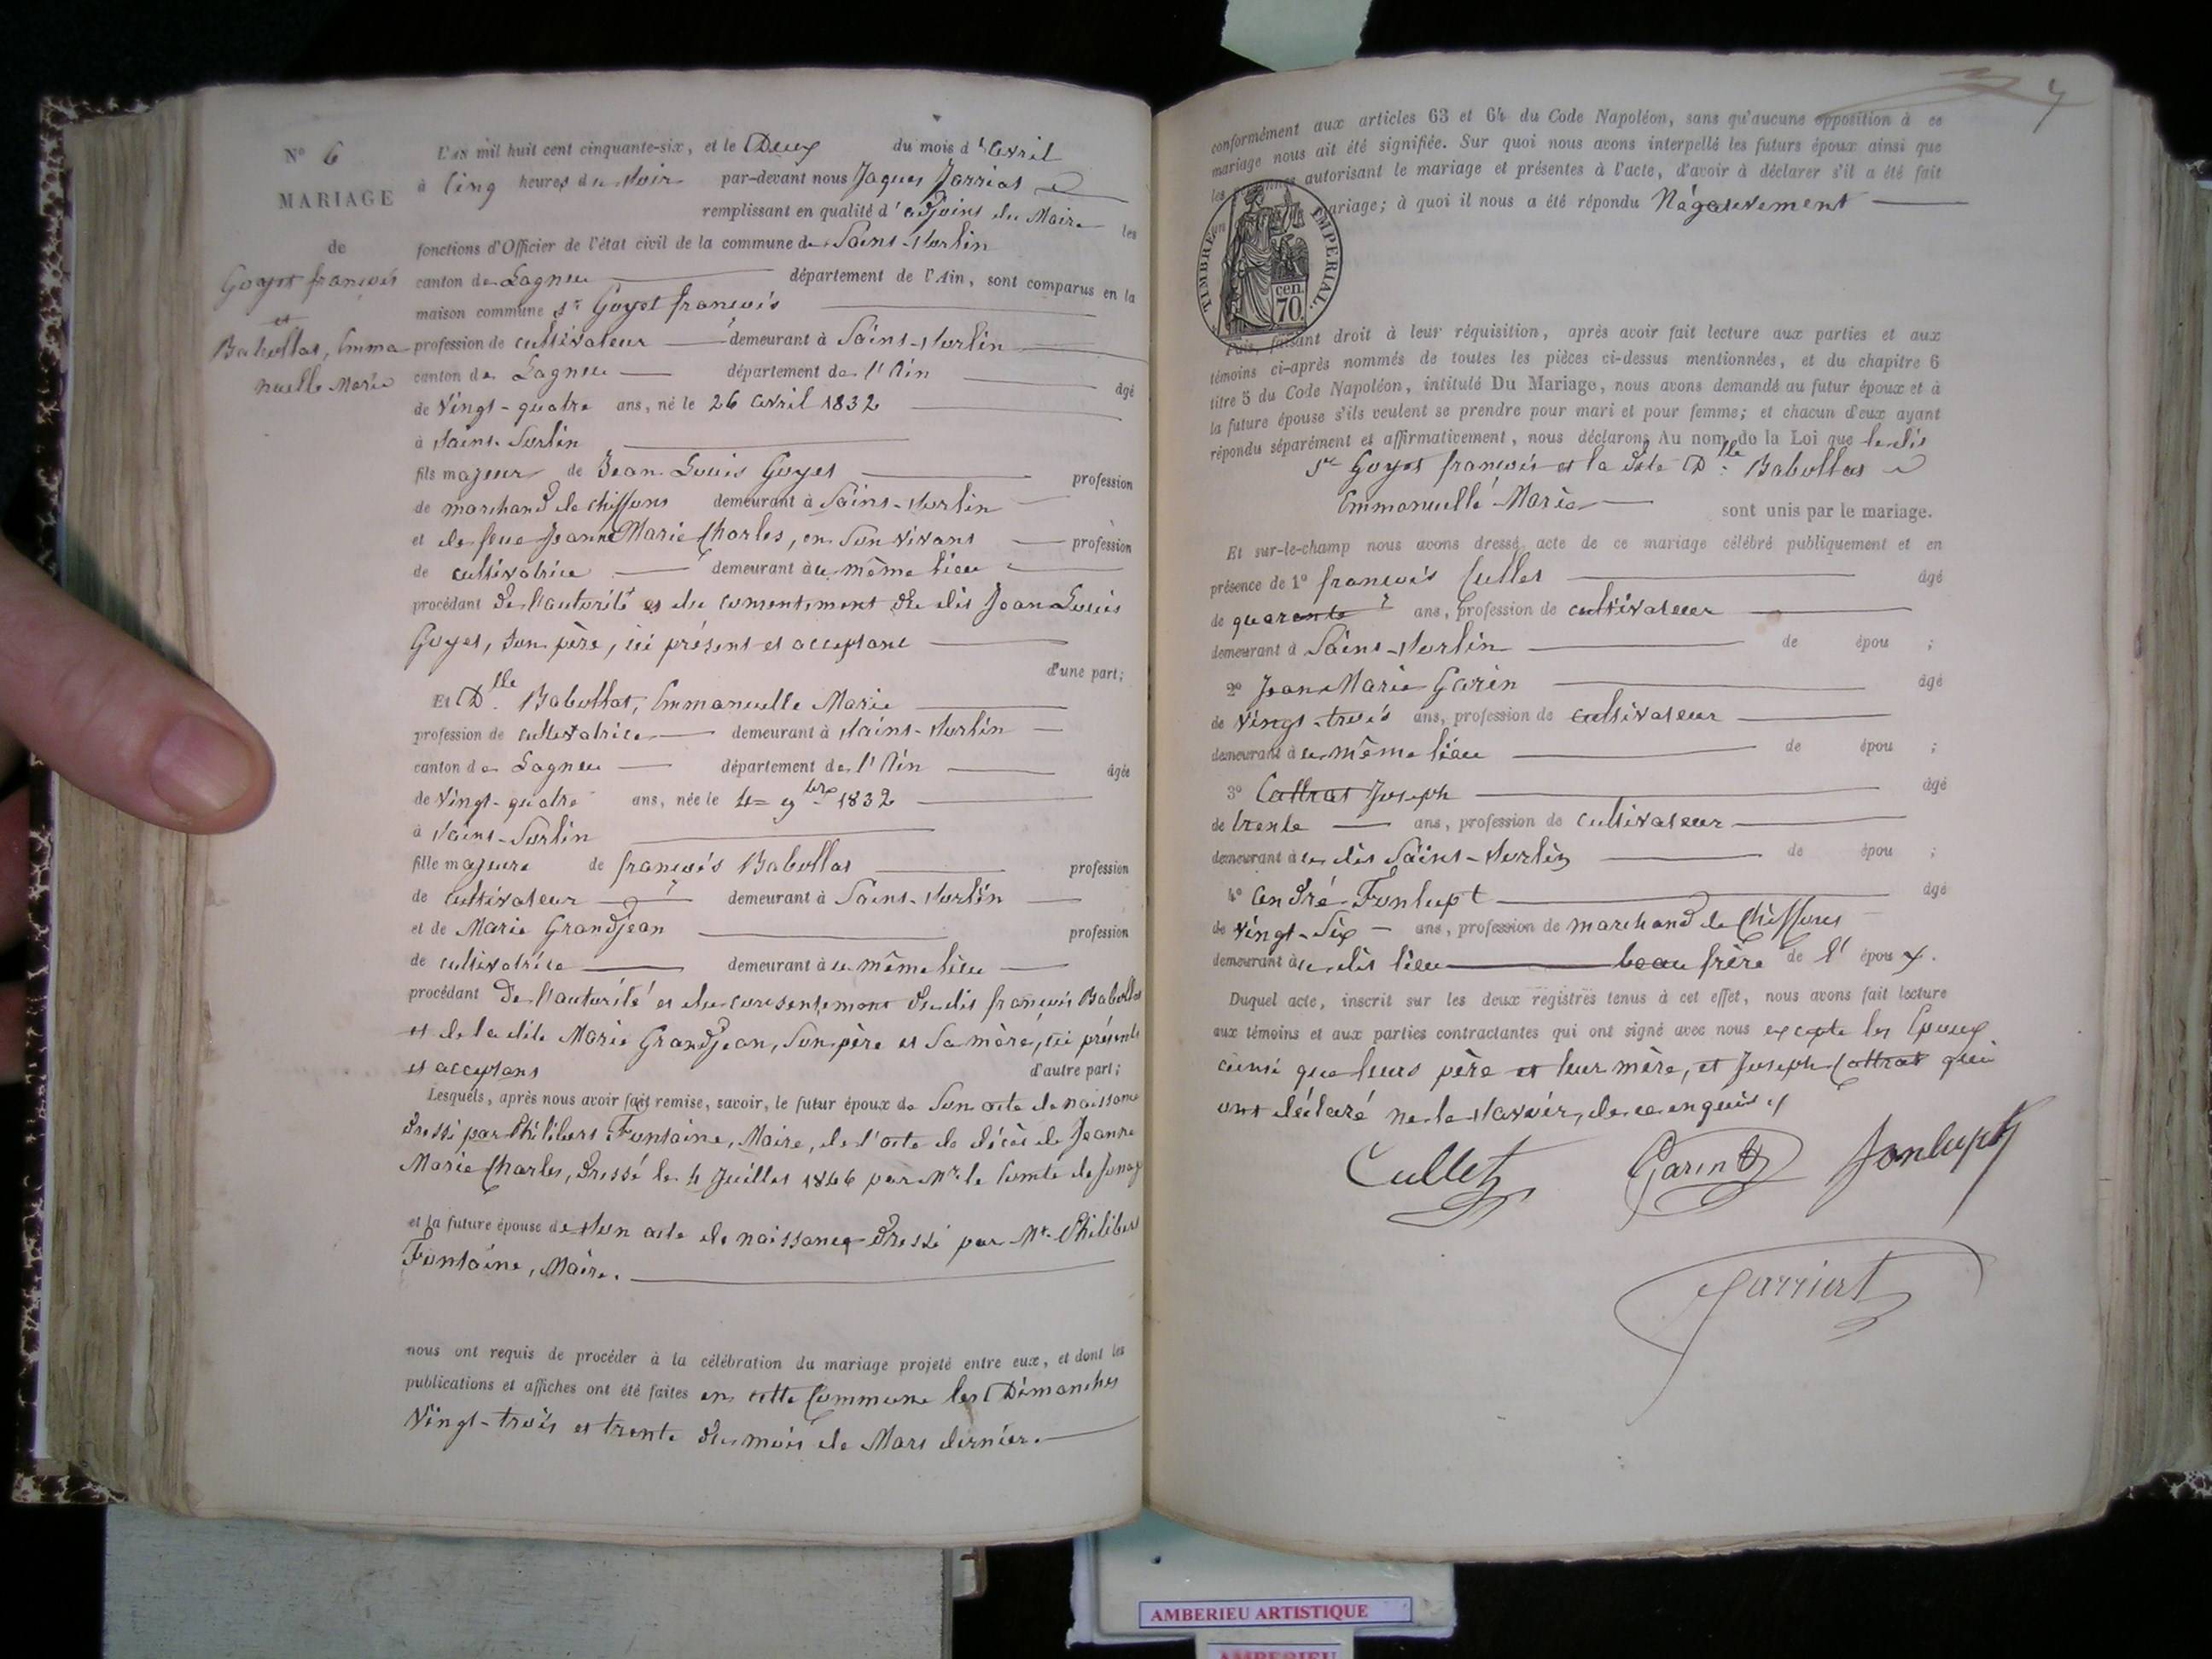 N° 6
MARIAGE
de
Goyet françois
et
Babollat, Emma
nuelle Marie
L'an mil huit cent cinquante-six, et le Deux du mois d'Avril
à Cinq heures du soir par-devant nous Jaques Jarriat
remplissant en qualité d'adjoint du Maire les
fonctions d'Officier de l'état civil de la commune de Saint-Sorlin
canton de Lagnieu département de l'Ain, sont comparus en la
maison commune Sr Goyet françois
profession de cultivateur demeurant à Saint-Sorlin
canton de Lagnieu département de l'Ain âgé
de Vingt-quatre ans, né le 26 Avril 1832
à Saint-Sorlin
fils majeur de Jean Louis Goyet profession
de marchand de chiffons demeurant à Saint-Sorlin
et de feue Jeanne Marie Charles, en Son vivant profession
de cultivatrice demeurant à ce même lieu
procédant De l'autorité et du consentement du dit Jean Louis
Goyet, son père, ici présent et acceptant
d'une part;
Et Dlle Babollat, Emmanuelle Marie
profession de cultivatrice demeurant à Saint-Sorlin
canton de Lagnieu département de l'Ain âgée
de Vingt-quatre ans, née le 4 = 9bre 1832
à Saint-Sorlin
fille majeure de françois Babollat profession
de cultivateur demeurant à Saint-Sorlin
et de Marie Grandjean profession
de cultivatrice demeurant à ce même lieu
procédant De l'autorité et du consentement du dit françois Babollat
et de la dite Marie Grandjean, Son père et Sa mère, ici présents
et acceptans d'autre part;
Lesquels, après nous avoir fait remise, savoir, le futur époux de Son acte de naissance
Dressé par Philibert Fontaine, Maire, de l'acte de décès de Jeanne
Marie Charles, Dressé le 4 Juillet 1846 par Mr le Comte de
et la future épouse de Son acte de naissance Dressé par Mr Philibert
Fontaine, Maire.
nous ont requis de procéder à la célébration du mariage projeté entre eux, et dont les
publications et affiches ont été faites en cette Commune les Dimanches
Vingt-trois et trente du mois de Mars dernier.
conformément aux articles 63 et 64 du Code Napoléon, sans qu'aucune opposition à ce
mariage nous ait été signifiée. Sur quoi nous avons interpellé les futurs époux ainsi que
les personnes autorisant le mariage et présentes à l'acte, d'avoir à déclarer s'il a été fait
mariage; à quoi il nous a été répondu Négativement
TIMBRE IMPERIAL.
70 cen.
Puis, faisant droit à leur réquisition, après avoir fait lecture aux parties et aux
témoins ci-après nommés de toutes les pièces ci-dessus mentionnées, et du chapitre 6
titre 5 du Code Napoléon, intitulé Du Mariage, nous avons demandé au futur époux et à
la future épouse s'ils veulent se prendre pour mari et pour femme; et chacun d'eux ayant
répondu séparément et affirmativement, nous déclarons Au nom de la Loi que le dit
Sr Goyet françois et la dite Dlle Babollat
Emmanuelle Marie sont unis par le mariage.
Et sur-le-champ nous avons dressé acte de ce mariage célébré publiquement et en
présence de 1° françois Cullet âgé
de quarante ans, profession de cultivateur
demeurant à Saint-Sorlin de épou ;
2° Jean Marie Garin âgé
de Vingt-trois ans, profession de cultivateur
demeurant à ce même lieu de épou ;
3° Cottrat Joseph âgé
de trente ans, profession de cultivateur
demeurant à ce dit Saint-Sorlin de épou ;
4° André Fonlupt âgé
de Vingt-Six ans, profession de marchand de Chiffons
demeurant à ce dit lieu beau frère de l'époux.
Duquel acte, inscrit sur les deux registres tenus à cet effet, nous avons fait lecture
aux témoins et aux parties contractantes qui ont signé avec nous excepté les Epoux
ainsi que leurs père et leur mère, et Joseph Cottrat qui
ont déclaré ne le Savoir, de ce enquis
Cullet Garin Fonlupt
Jarriat
AMBERIEU ARTISTIQUE
AMBERIEU